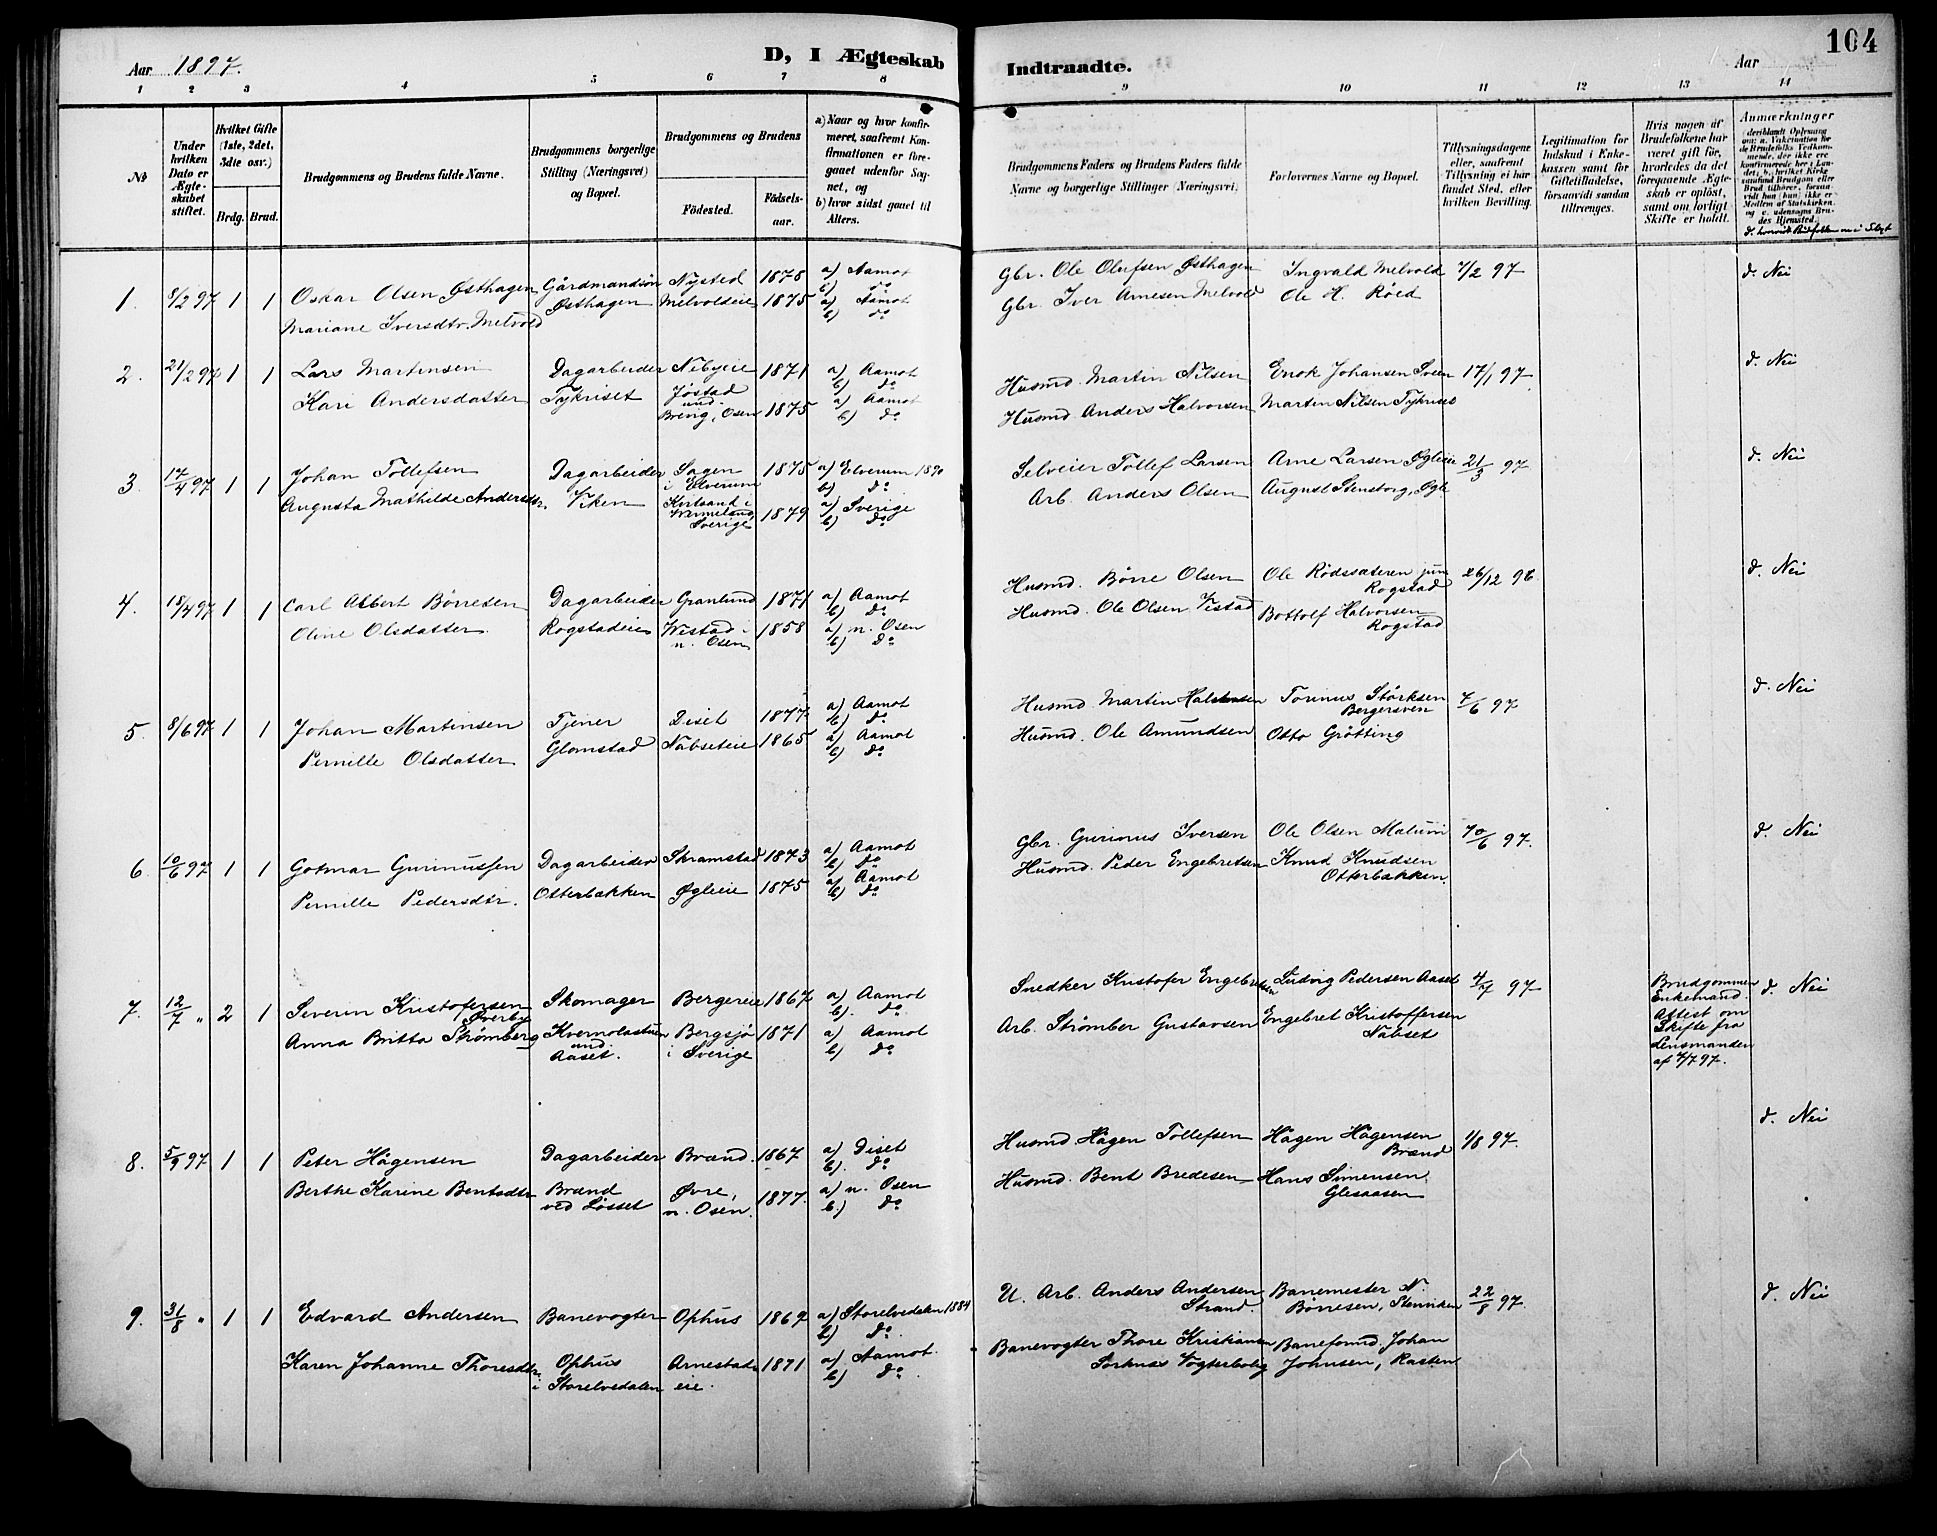 Aar 1897.
D, I Ægteskab Indtraadte.
Aar
104
1 2 3 4 5 6 7 8 9 10 11 12 13 14
№
Under hvilken Dato er Ægteskabet stiftet.
Hvilket Gifte (1ste, 2det, 3dte osv.)
Brdg. Brud.
Brudgommens og Brudens fulde Navne.
Brudgommens borgerlige Stilling (Næringsvei) og Bopæl.
Brudgommens og Brudens
Födested.
Födselsaar.
a) Naar og hvor konfirmeret, saafremt Konfirmationen er foregaaet udenfor Sognet, og
b) hvor sidst gaaet til Alters.
Brudgommens Faders og Brudens Faders fulde Navne og borgerlige Stillinger (Næringsvei)
Forlovernes Navne og Bopæl.
Tillysningsdagene eller, saafremt Tillysning ei har fundet Sted, efter hvilken Bevilling.
Legitimation for Indskud i Enkekassen samt for Gifletilladelse, forsaavidt saadan tiltrænges.
Hvis nogen af Brudefolkene har været gift för, hvorledes da det foregaaende Ægteskab er oplöst, samt om lovligt Skifte er holdt.
Anmærkninger
1. 8/2 97 1 1 Oskar Olsen Østhagen Gårdmandsøn Nysted 1878 a) Aamot b) do Gbr. Ole Olufsen Østhagen Ingvald Melvold 7/2 97 d. Nei
Mariane Iversdtr. Melvold Østhagen Melvoldeie 1875 a) Aamot b) do Gbr. Iver Arnesen Melvold Ole H. Röed
2. 21/2 97 1 1 Lars Martinsen Dagarbeider Nibyeie 1871 a) Aamot b) do Husmd. Martin Nilsen Enok Johansen Sveen 17/1 97 d. Nei
Kari Andersdatter Tykriset Jøstad und. Breng. Osen 1875 a) Aamot b) do Husmd. Anders Halvorsen Martin Nilsen Tykriset
3. 17/4 97 1 1 Johan Tollefsen Dagarbeider Sagen i Elverum 1875 a) Elverum 1890 b) do Selveier Tollef Larsen Arne Larsen Øgleie 21/3 97 d. Nei
Augusta Mathilde Andersdtr. Viken Wermeland Sverige 1879 a) Sverige b) do Arb. Anders Olsen August Stensborg, Ogle
4. 18/4 97 1 1 Carl Albert Börresen Dagarbeider Granlund 1871 a) Aamot b) do Husmd. Börre Olsen Ole Rödssæteren jun Rogstad 26/12 96. d. Nei
Oline Olsdatter. Rogstadeie Westad i n. Osen 1858 a) n. Osen b) do Husmd. Ole Olsen Vestad Bottolf Halvorsen Rogstad
5. 8/6 97 1 1 Johan Martinsen Tjener Diset 1877 a) Aamot b) do Husmd. Martin Halstensen Torinus Störksen Bergersven 7/6 97 d. Nei
Pernille Olsdatter Glomstad Nabseteie 1865 a) Aamot b) do Husmd. Ole Amundsen Otto Grötting
6. 10/6 97 1 1 Gotmar Gurinussen Dagarbeider Skramstad 1873 a) Aamot b) do Gbr. Gurinus Iversen Ole Olsen Malum 10/6 97. d. Nei
Pernille Pedersdtr. Otterbækken Øgleie 1875 a) Aamot b) do Husmd. Peder Engebretsen Knud Knudsen Otterbækken.
7. 12/7 " 2 1 Severin Kristofersen Øverby Skomager Bergereie 1867 a) Aamot b) do Snedker Kristofer Engebretsen Ludvig Pedersen Aaset 4/7 97 Brudgommen Enkemand. Attest om Skifte fra Lensmanden af 7/7 97. d. Nei
Anna Britta Strömberg Kvernolastuen und. Aaset. Bergsjö i Sverige 1871 a) Aamot b) do Arb. Strömber Gustavsen Engebret Kristoffersen Nabset
8. 5/9 97 1 1 Peter Hågensen Dagarbeider Brænd. 1867 a) Diset b) do Husmd. Hågen Tollefsen Hågen Hågensen Brænd 1/8 97. d. Nei
Berthe Karine Bentsdtr Brænd ved Løsset Øvre, n. Osen. 1877. a) n. Osen b.) do Husmd. Bent Bredesen Hans Simensen Glesaasen
9. 31/8 " 1 1 Edvard Andersen Banevogter Ophus 1869 a) Storelvedalen 1884 b) do. U. Arb. Anders Andersen Strand. Banemester N. Börresen, Stenviken 22/8 97. d. Nei
Karen Johanne Thoresdtr. Ophus i Storelvedalen Arnestadeie. 1871 a) Aamot. b) do. Banevogter Thore Kristiansen Sorknæs Vogterbolig Baneformd. Johan Johnsen, Rasten